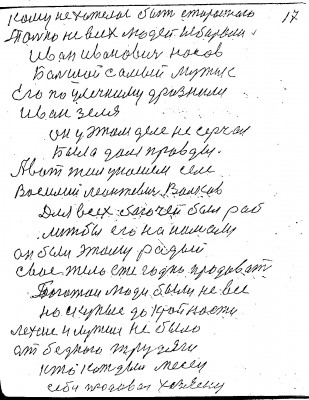 кому не хотелос быт старостого 17
Толко не всех людей избирали.
Иван Иванович носов
Балшой самый мужык
Его по уличныму дразнили
Иван зеля
он у этом деле не серчал
Была дом правды.
А вот жил у нашем селе
Василий леонтевич Волков
Для всех богочей был раб
лижбы его нанимали
он был этому радый
свое тело ежегодно продоват
Богатаи люди были не все
но скупые до крайности
легше и лутши не было
от бедного трудяги
кто каждый месец
себя продовал хозяину